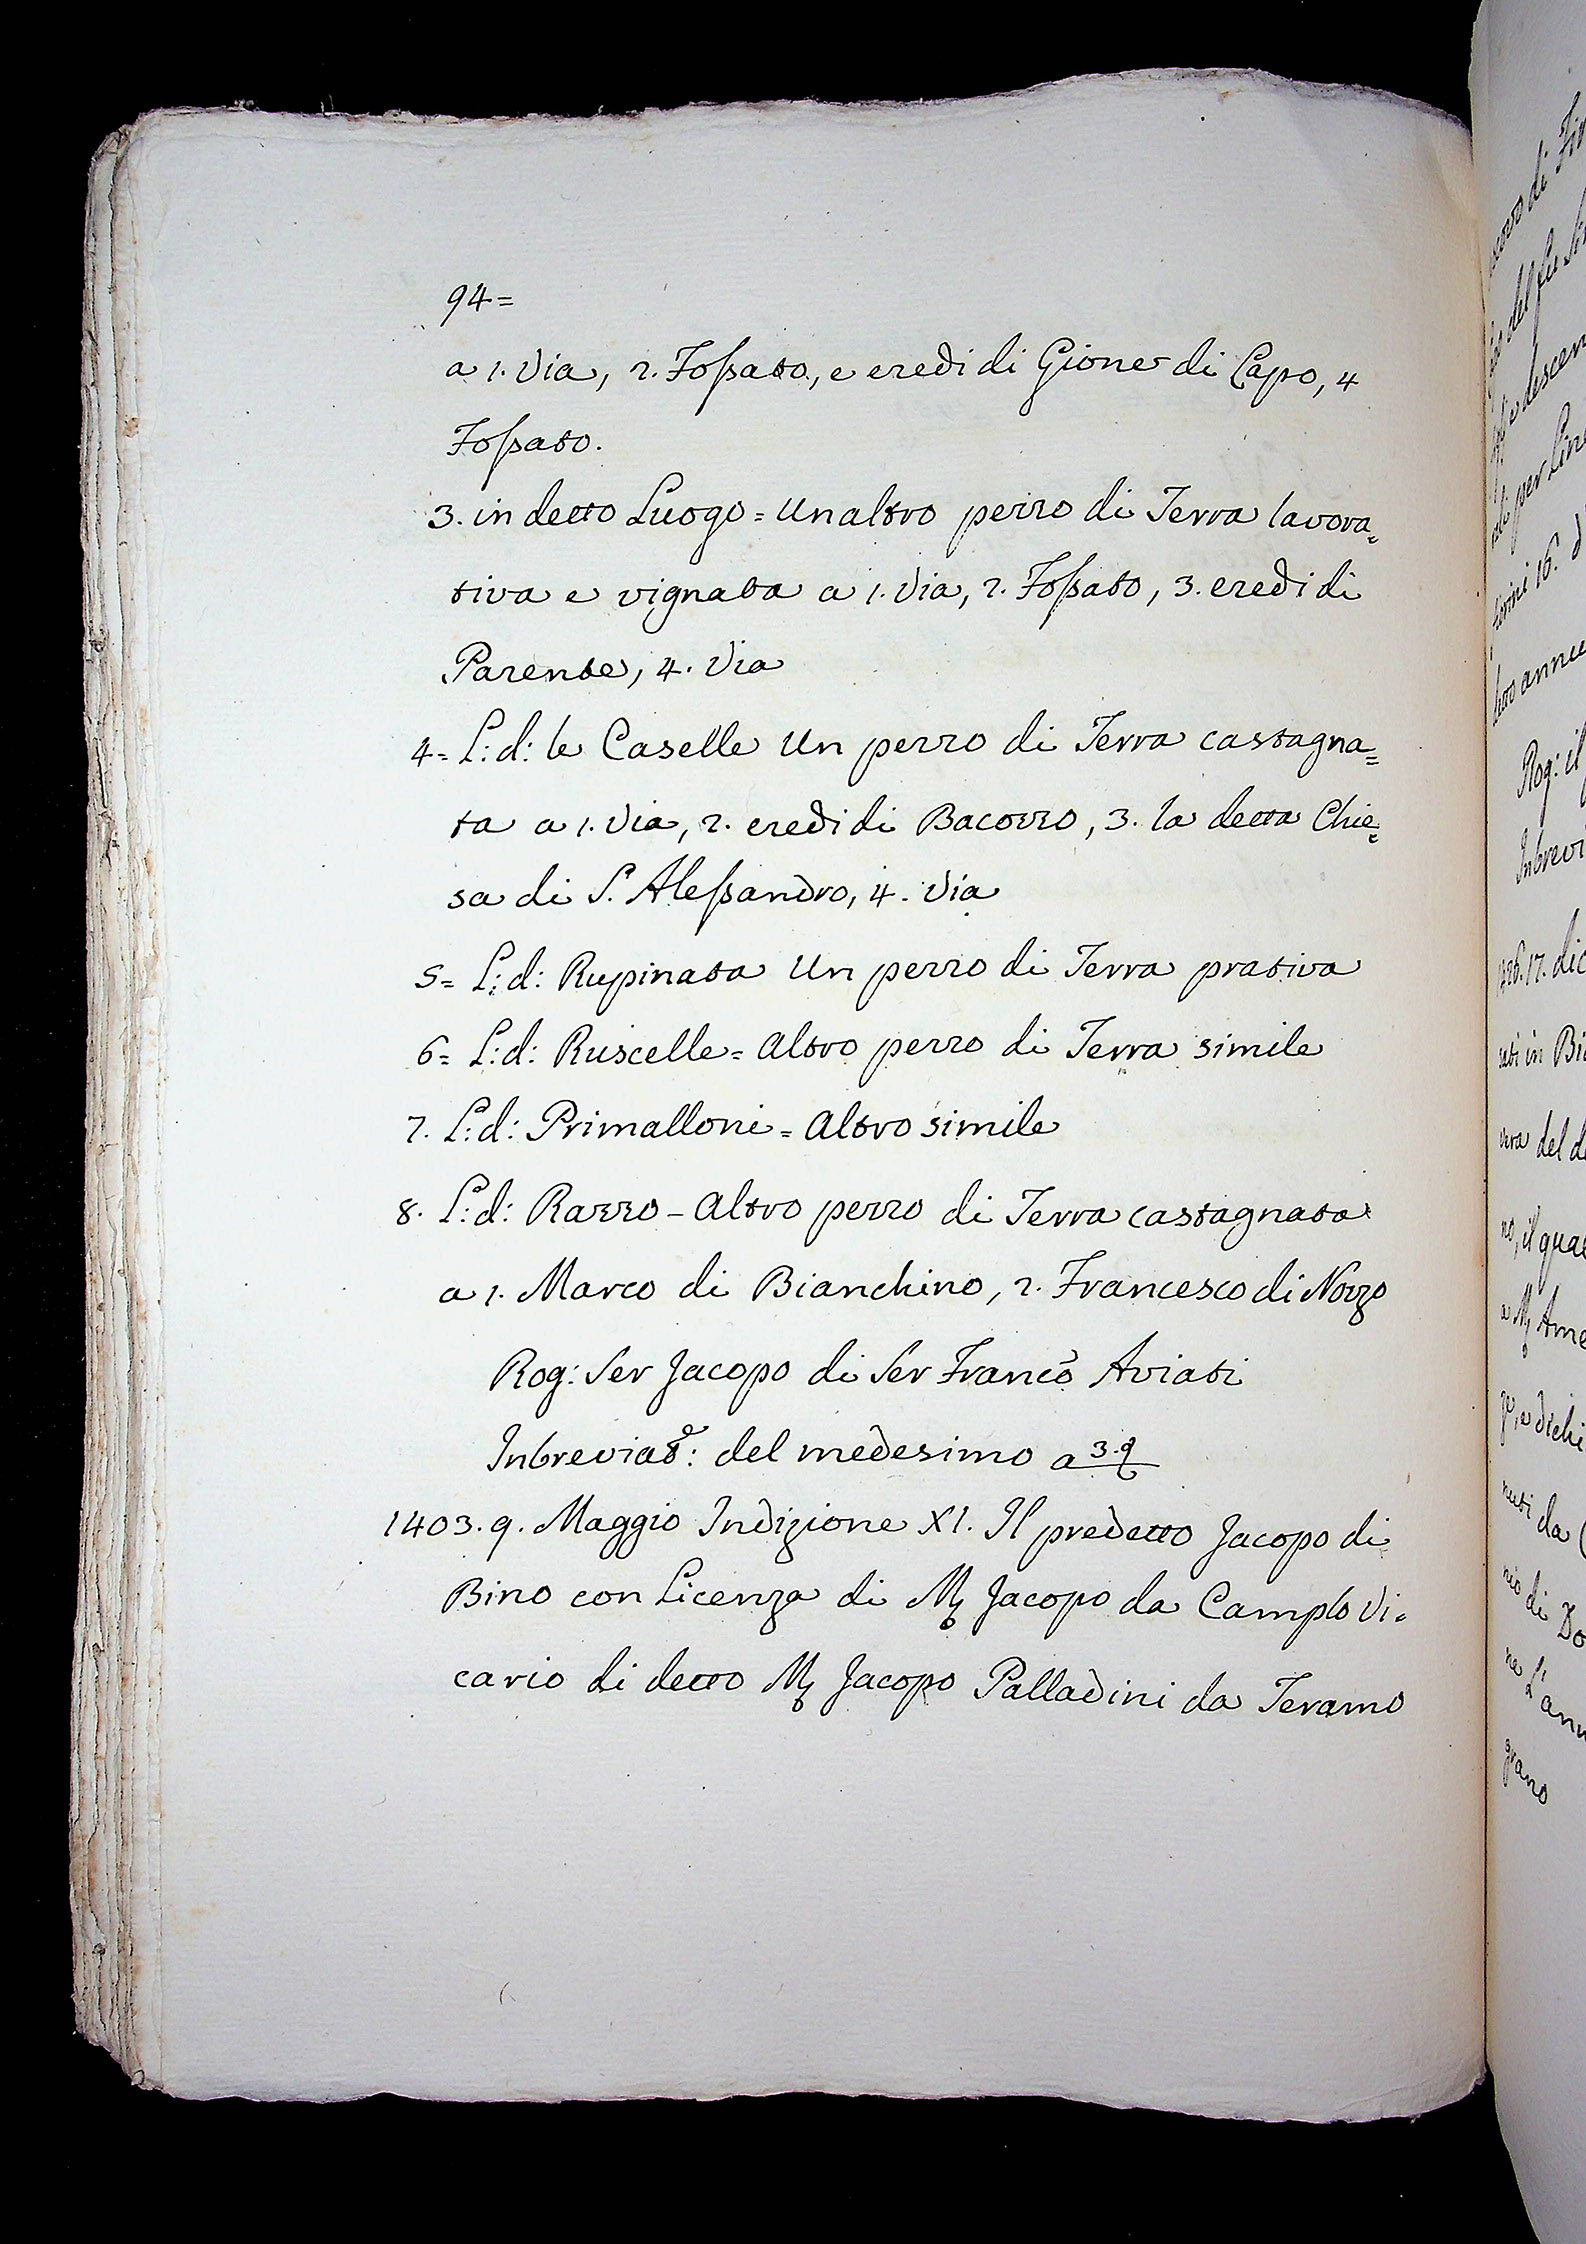 94=
a 1. Via, 2. Fossato, e eredi di Gione di Capo, 4
Fossato.
3. in detto Luogo = un altro pezzo di Terra lavora=
tiva e vignata a 1. Via, 2. Fossato, 3. eredi di
Parente, 4. Via
4= L: d: le Caselle un pezzo di Terra castagna=
ta a 1. Via, 2. eredi di Bacozzo, 3. la detta Chie=
sa di S. Alessandro, 4. Via
5= L: d: Rupinata un pezzo di Terra prativa
6= L: d: Ruscelle = altro pezzo di Terra simile
7. L: d: Primalloni = altro simile
8. L: d: Razzo - altro pezzo di Terra castagnata
a 1. Marco di Bianchino, 2. Francesco di Nozzo
Rog: Ser Jacopo di Ser Francō Aviati
Inbreviatᵉ: del medesimo a 3.9
1403. 9. Maggio Indizione XI. Il predetto Jacopo di
Bino con Licenza di M Jacopo da Camplo Vi=
cario di detto M Jacopo Palladini da Teramo
di
del
descen
per Line
16. d
annu
Rog: il
Inbrevi
17. dic
in Bi
del d
no, il qua
a M Ame
e dichi
nuti da
nio di Do
ne L'ann
grano